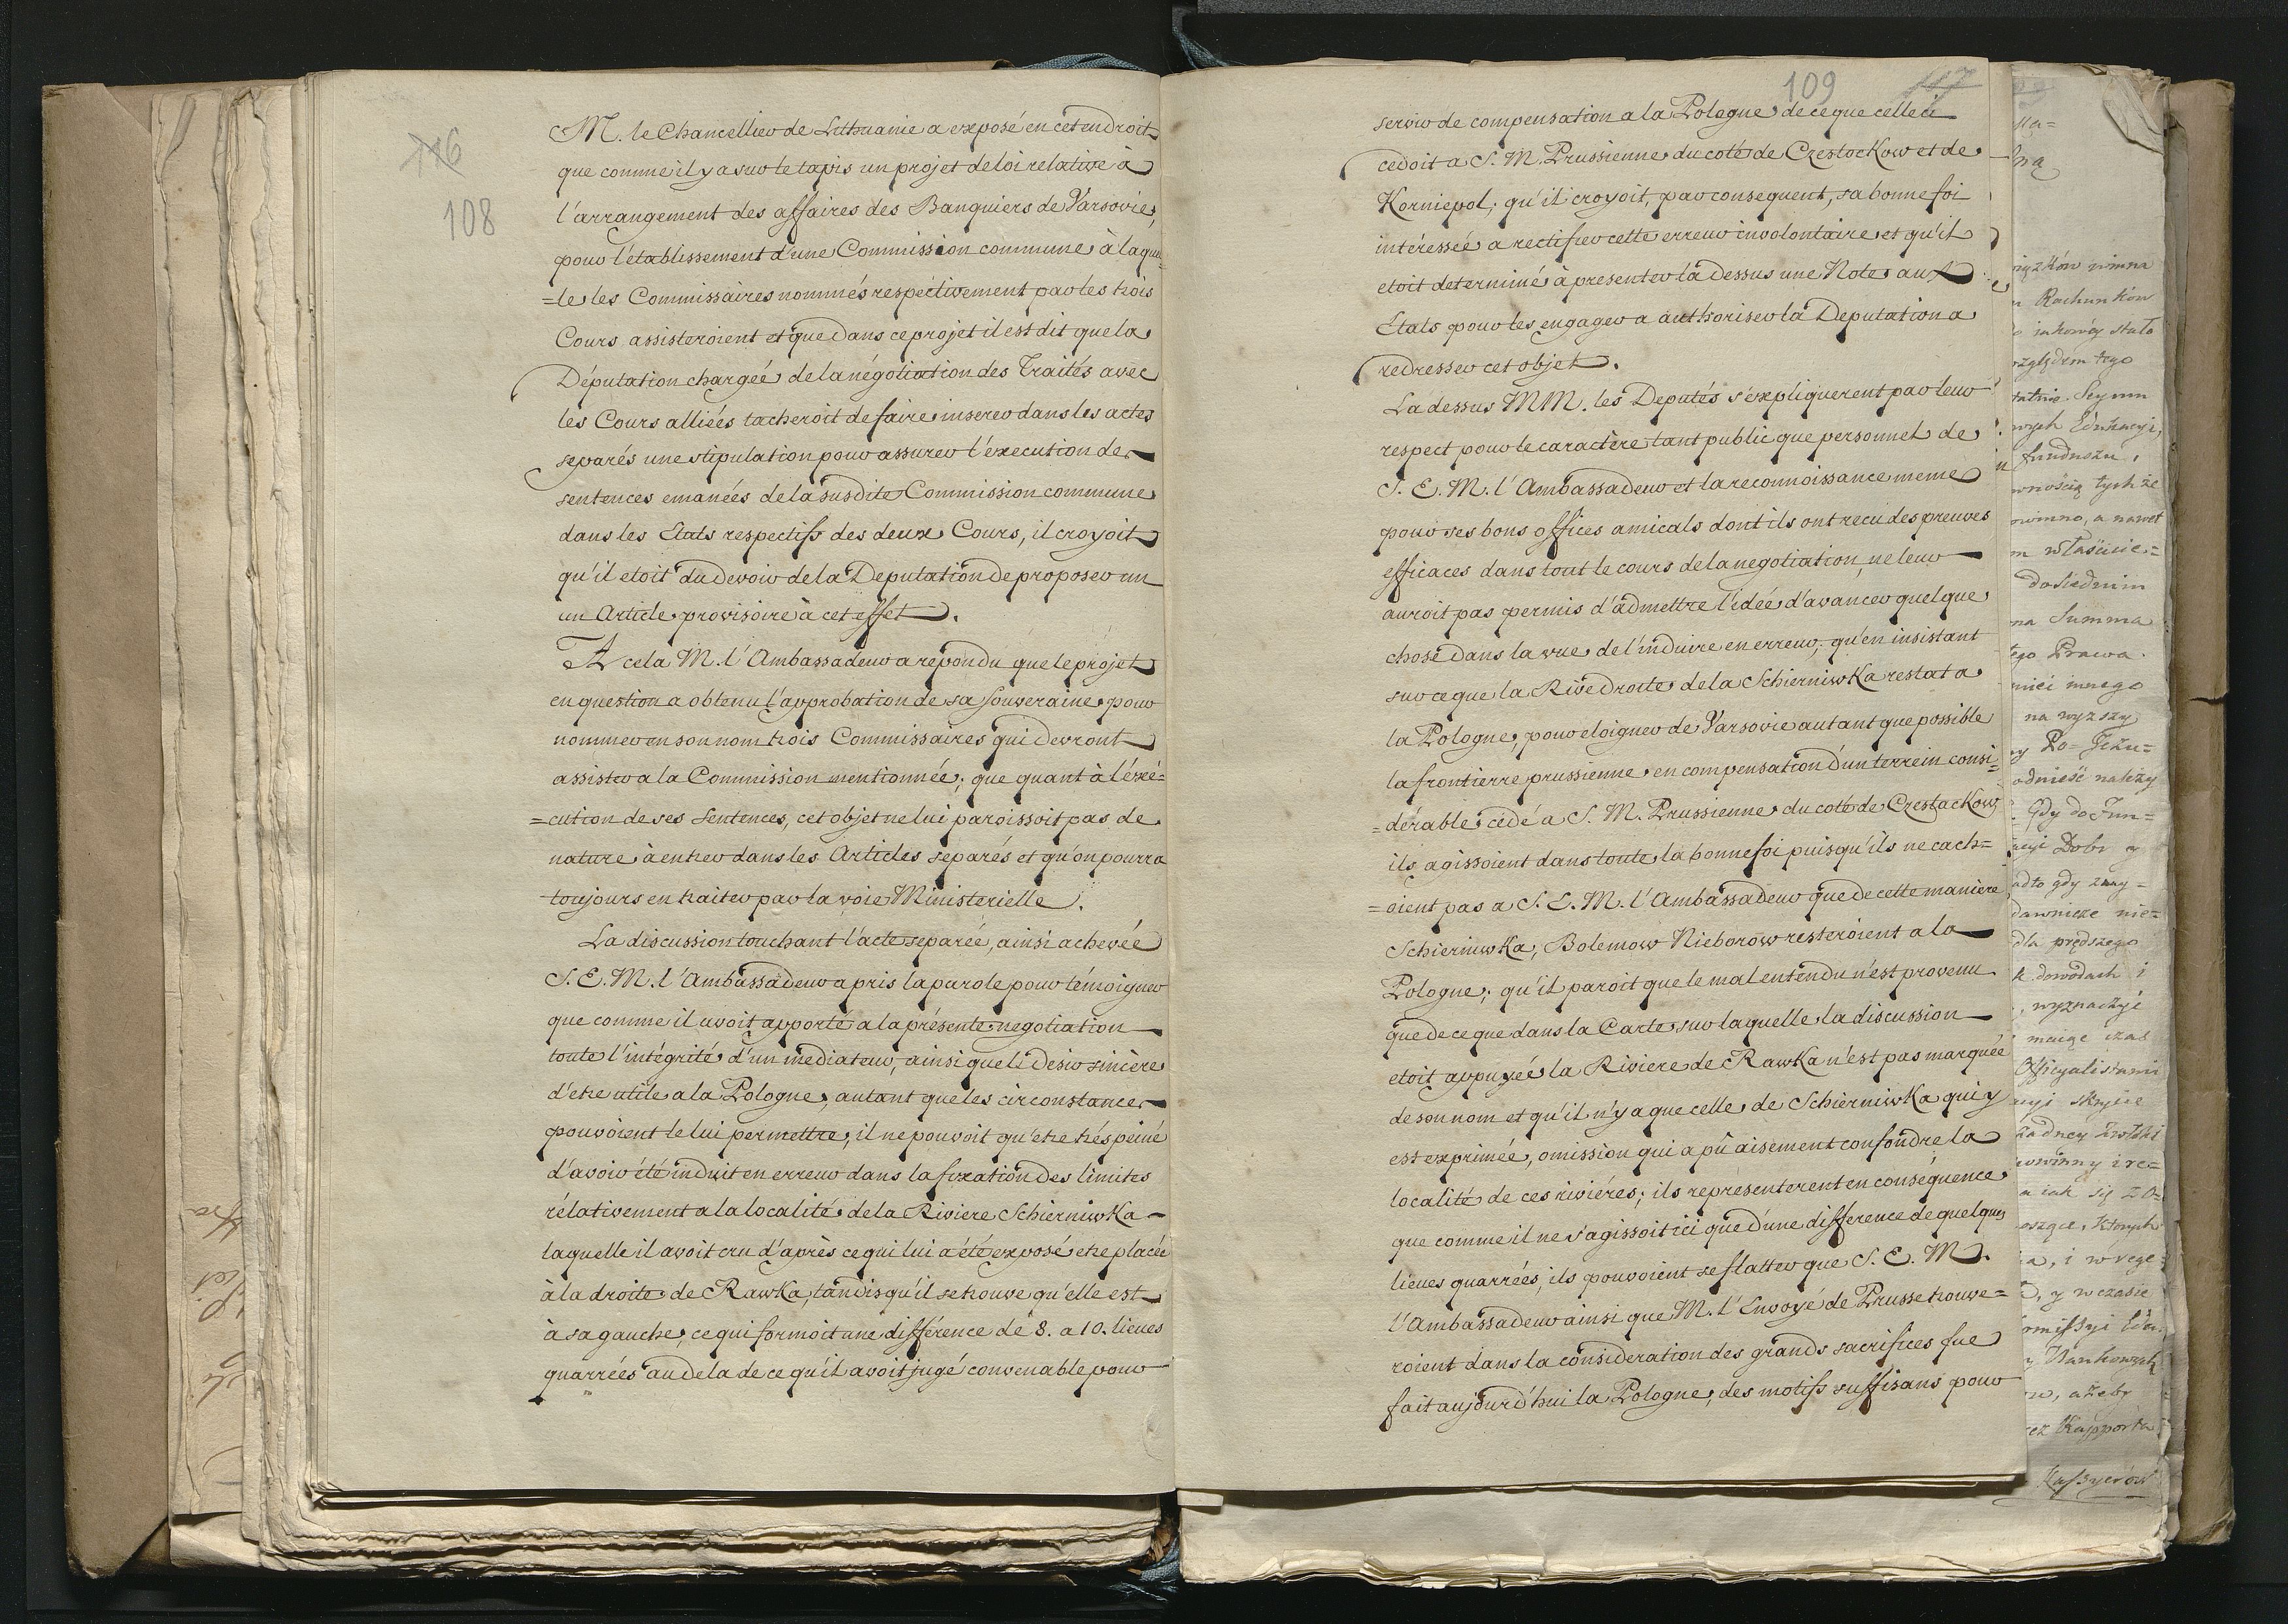 116
108
M. le Chancellier de Lithuanie a exposé en cet endroit
que comme il y a sur le tapis un projet de loi relative à
l'arrangement des affaires des Banquiers de Varsovie,
pour l'établissement d'une Commission commune à laquel=
=le les Commissaires nommés respectivement par les trois
Cours assisteroient et que dans ce projet il est dit que la
Députation chargée de la négotiation des Traités avec
les Cours alliées tacheroit de faire inserer dans les actes
separés une stipulation pour assurer l'éxecution des
sentences emanées de la susdite Commission commune
dans les Etats respectifs des deux Cours, il croyoit
qu'il etoit du devoir de la Deputation de proposer un
un Article provisoire à cet effet.
A cela M. l'Ambassadeur a repondu que le projet
en question a obtenu l'approbation de sa Souveraine pour
nommer en son nom trois Commissaires qui devront
assister a la Commission mentionnée; que quant à l'éxé=
=cution de ses Sentences, cet objet ne lui paroissoit pas de
nature à entrer dans les Articles separés et qu'on pourra
toujours en traiter par la voie Ministerielle.
La discussion touchant l'acte separée, ainsi achevée
S. E. M. l'Ambassadeur a pris la parole pour témoigner
que comme il avoit apporté a la présente negotiation
toute l'intégrité d'un mediateur, ainsi que le desir sincère
d'etre utile a la Pologne, autant que les circonstances
pouvoient le lui permettre, il ne pouvoit qu'etre très peiné
d'avoir été induit en erreur dans la fixation des limites
rélativement a la localité de la Riviere Schierniwka
laquelle il avoit cru d'après ce qui lui a été exposé etre placée
à la droite de Rawka, tandis qu'il se trouve qu'elle est
à sa gauche, ce qui formoit une différence de 8. a 10. lieues
quarrées au dela de ce qu'il avoit jugé convenable pour
109
117
servir de compensation a la Pologne de ce que celle ci
cedoit a S. M. Prussienne du coté de Czestockow et de
Korniepol; qu'il croyoit, par consequent, sa bonne foi
intéressée a rectifier cette erreur involontaire et qu'il
etoit determiné à presenter la dessus une Note aux
Etats pour les engager a authoriser la Deputation a
redresser cet objet.
La dessus MM. les Deputés s'expliquerent par leur
respect pour le caractère tant public que personnel de
S. E. M. l'Ambassadeur et la reconnoissance meme
pour ses bons offices amicals dont ils ont recu des preuves
efficaces dans tout le cours de la negotiation, ne leur
auroit pas permis d'admettre l'idée d'avancer quelque
chose dans la vue de l'induire en erreur; qu'en insistant
sur ce que la Rive droite de la Schierniwka restat a
la Pologne, pour eloigner de Varsovie autant que possible
la frontierre prussienne en compensation d'un terrein consi=
=dérable cedé a S. M. Prussienne du coté de Czestackow
ils agissoient dans toute la bonne foi puisqu'ils ne cach=
=oient pas a S. E. M. l'Ambassadeur que de cette maniere
Schierniwka, Bolemow Nieborow resteroient a la
Pologne; qu'il paroit que le mal entendu n'est provenu
que de ce que dans la Carte sur laquelle la discussion
etoit appuyée la Riviere de Rawka n'est pas marquée
de son nom et qu'il n'y a que celle de Schierniwka qui y
est exprimée, omission qui a pû aisement confondre la
localité de ces riviéres; ils représenterent en conséquence
que comme il ne s'agissoit ici que d'une difference de quelques
lieues quarrées, ils pouvoient se flatter que S. E. M.
l'Ambassadeur ainsi que M. l'Envoyé de Prusse trouve=
roient dans la consideration des grands sacrifices que
fait aujourd'hui la Pologne, des motifs suffisans pour
Rachunków
względem tego
Seymu
funduszu,
tychże
a nawet
Summa
Prawa
innego
na wyższy
należy
Gdy do Fun=
Dobr
gdy
dla prędszego
dowodach i
czas
iak się
i w
y w czasie
ażeby
Kassyerów